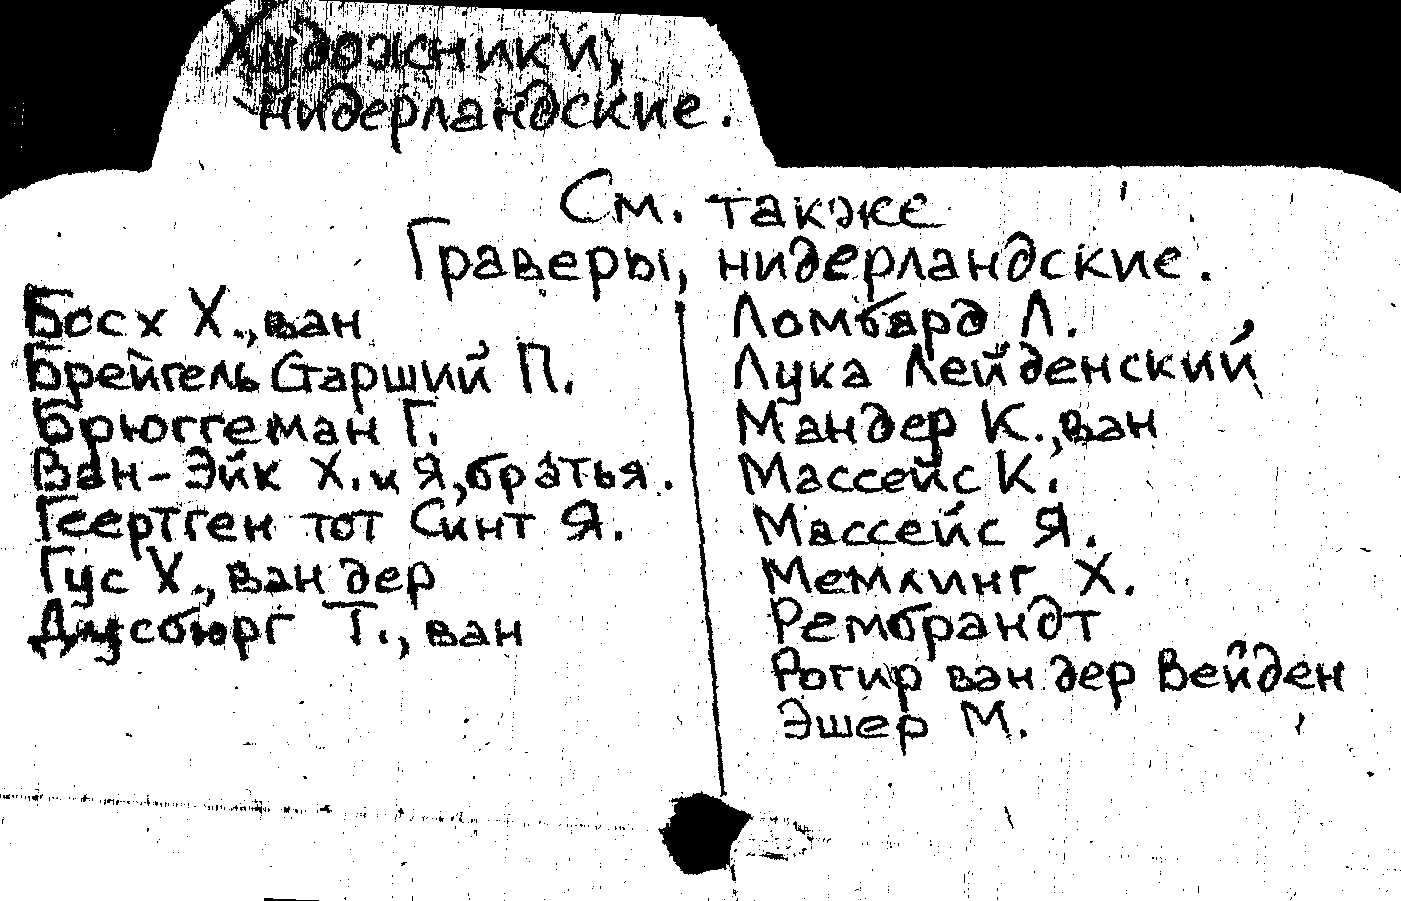 Художники,
нидерландские.
См. также
Граверы, нидерландские.
Босх Х., ван
Брейгель Старший П.
Брюггеман Г.
Ван-Эйк Х. и Я, братья.
Геертген тот Синт Я.
Гус Х., ван дер
Дусбюрг Т., ван
Ломбард Л.
Лука Лейденский
Мандер К., ван
Массейс К.
Массейс Я.
Мемлинг Х.
Рембрандт
Рогир ван дер Вейден
Эшер М.